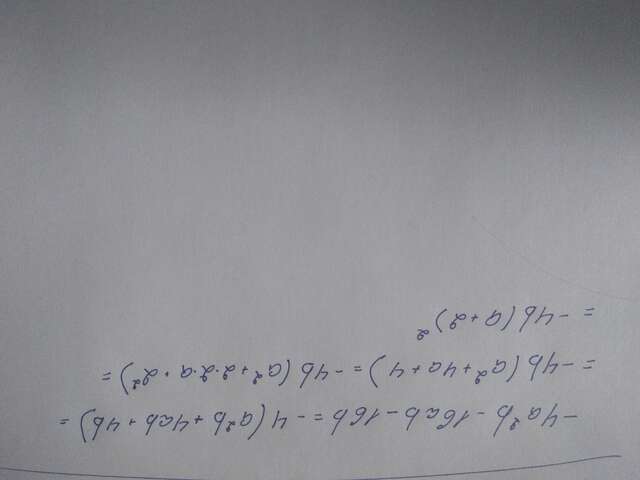 -4a²b - 16ab - 16b = -4(a²b + 4ab + 4b) =
= -4b(a² + 4a + 4) = -4b(a² + 2·2·a + 2²) =
= -4b(a + 2)²